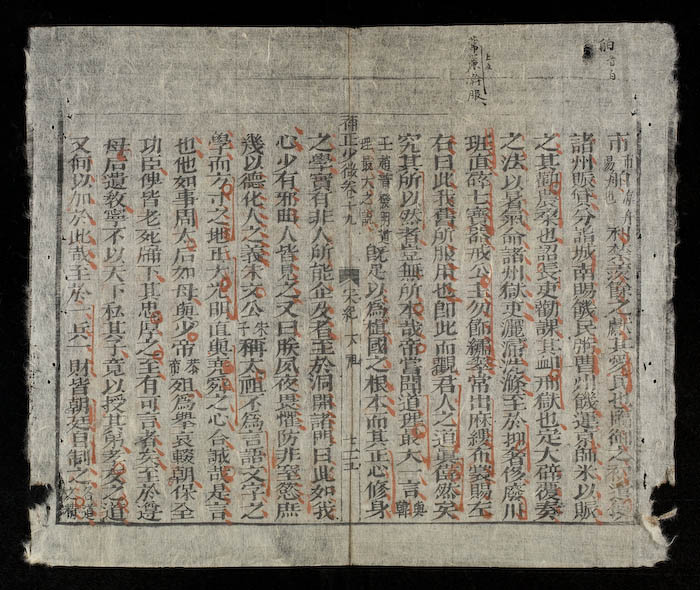 諸州賑貸分詣城南賜饑民賑曹州饑運京師米以賑
之其勸農桑也詔長吏勸課其恤刑獄也定大辟復奏
之法以暑氣命諸州獄吏灑掃洗滌至於抑奢侈廢川
班直碎七寶器戒公主勿飾繡翠常出麻縷布裳賜左
右曰此我舊所服用也即此而觀君人之道其當然矣
究其所以然者豈無所本哉帝嘗問道理最大一言
王趙普
理最大之
既足以為植國之根本而其正心修身
少微卷十九
宋紀
太祖
之學實有非人所能企及者至於洞開諸門曰此如我
心少有邪曲人皆見之又曰朕夙夜畏懼防非窒慾庶
幾以德化人之義朱文公
朱子
稱太祖不為言語文字之
學而方寸之地正大光明直與堯舜之心合誠哉是言
也他如事周太后如母與少帝
如為舉哀輟朝保全
功臣俾皆老死牖下其忠厚之至有可言者矣至於遵
母后遺教寧不以天下私其子竟以授其弟孝友之道
又何以加於此哉至於一兵一財皆朝廷自制之